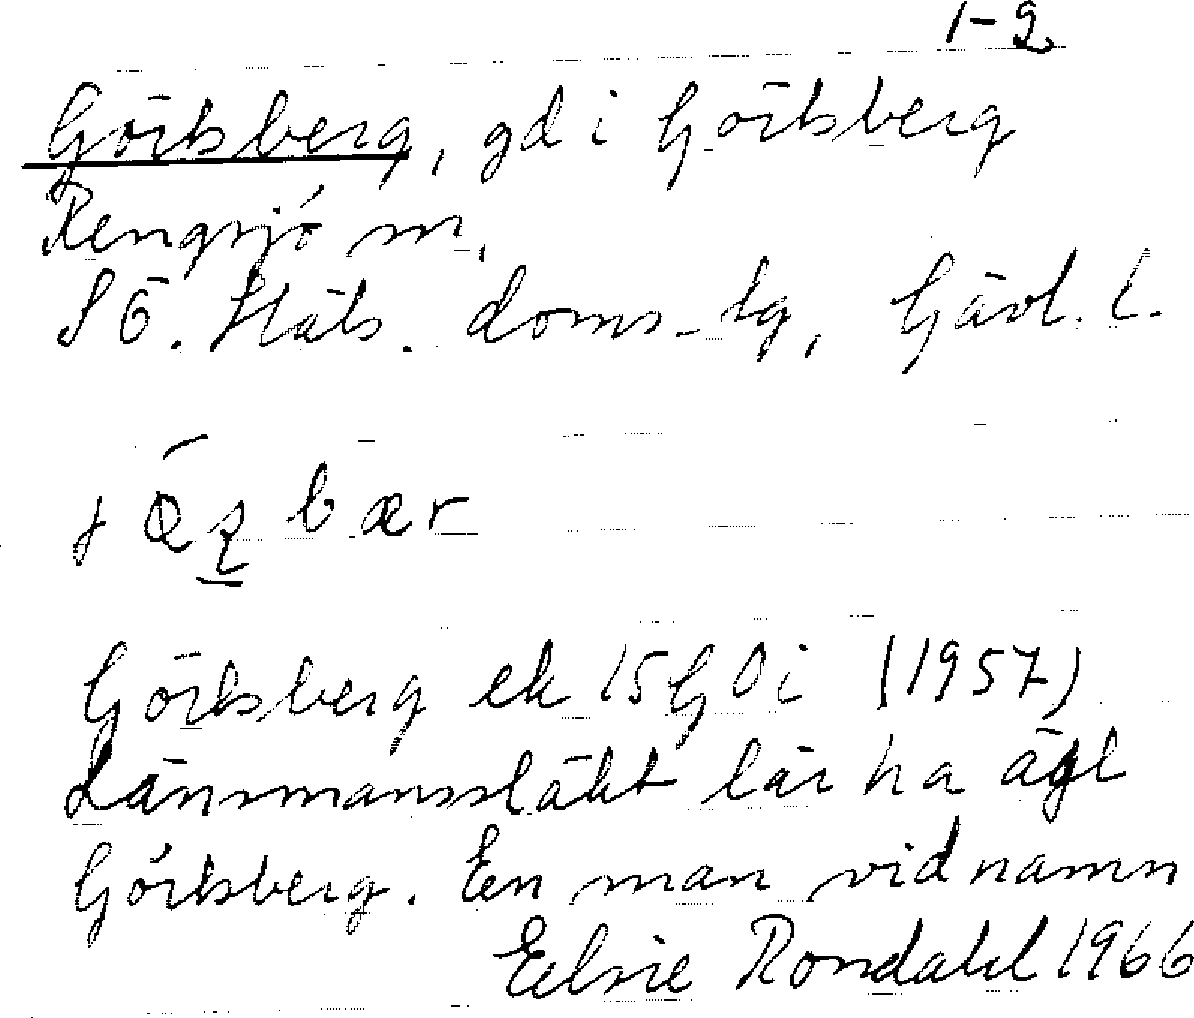 1-2
Görtsberg, gd i Görtsberg
Rengsjö sn,
SÖ. Häls. doms-tg, Gävl. l.
Görtsberg ek 15 G D i (1957)
Länsmanssläkt lär ha ägt
Görtsberg. En man vid namn
Elsie Rondahl 1966